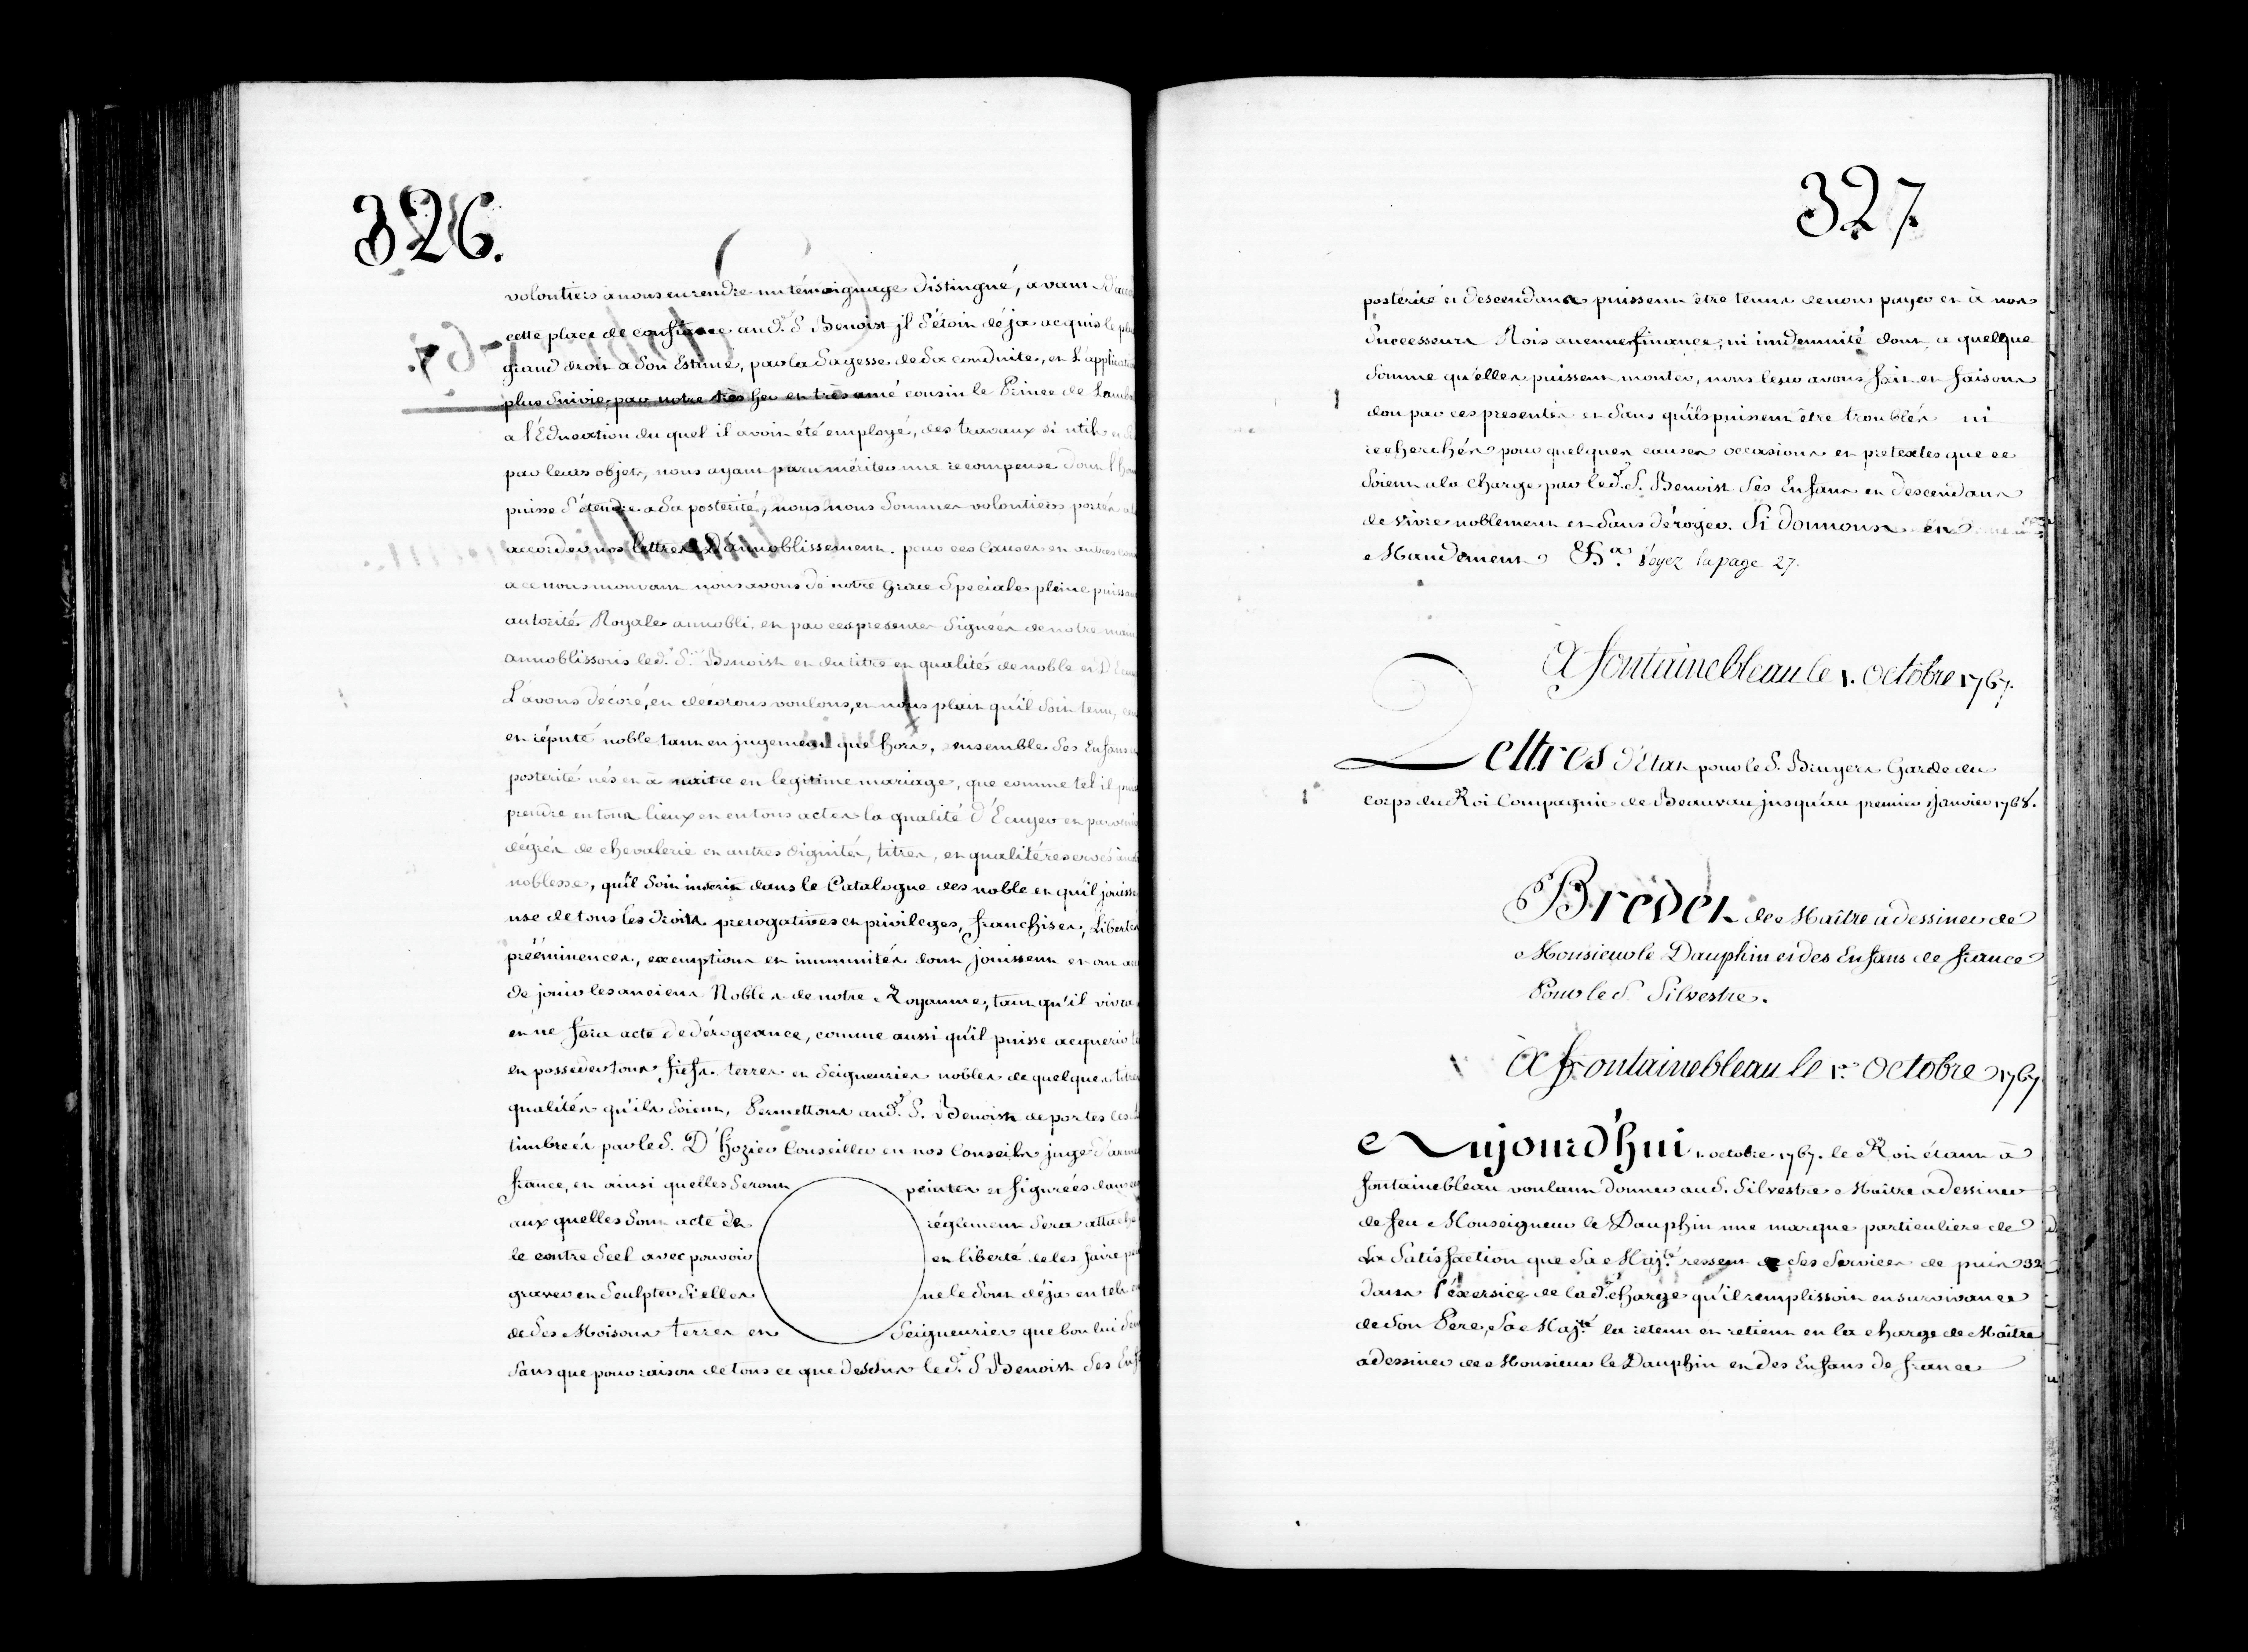 326.
volontiers a nous en rendre un témoignage distingué, avant
cette place de confiance aud. S. Benoist il s'étoit déja acquis le plus
grand droit a son Estime, par la Sagesse de Sa conduite, et L'application
plus Suivie par notre très cher et très amé cousin le Prince de
a l'Education du quel il avoit été employé, des travaux si utiles
par leurs objets, nous ayant paru mériter une recompense dont
puisse s'étendre a Sa posterité, nous nous Sommes volontiers portés a
accorder nos lettres d'annoblissement. pour ces Causes et autres
a ce nous mouvant nous avons de notre Grace Speciale pleine puissance
autorité Royale annobli, et par ces presentes Signées de notre main
annoblissons led. S. Benoist et du titre et qualités de noble et
L'avons décoré, et décorons voulons, et nous plait qu'il Soit tenu,
et réputé noble tant en jugement que hors, ensemble Ses Enfans
posterité nés et à naitre en legitime mariage, que comme tel il
prendre en tous lieux et en tous actes la qualité d'Ecuyer et
dégrés de chevalerie et autres dignités, titres, et qualité reservés
noblesse, qu'il Soit inscrit dans le Catalogue des noble et qu'il jouisse
use de tous les droits prerogatives et privileges, franchises, Libertés
prééminences, exemptions et immunités dont jouissent et ont
de jouir les anciens Nobles de notre Royaume, tant qu'il vivra
et ne fera acte de dérogeance, comme aussi qu'il puisse acquerir
et posseder tous fiefs terres et Seigneuries nobles de quelques titres
qualités qu'ils Soient, Permettons aud. S. Benoist de porter les
timbrées par le S. D'hozier Conseiller en nos Conseils juge d'armes
france, et ainsi quelles Seront peintes et figurées dans
aux quelles Sont acte de réglement Sera attaché
le contre Scel avec pouvoir et liberté de les faire
graver et Sculpter Si elles ne le Sont déja en tels
de Ses Maisons terres et Seigneuries que bon lui
Sans que pour raison de tous ce que dessus led. S. Benoist Ses
327
postérité et descendans puissent être tenus de nous payer et à nos
Successeurs Rois aucune finance, ni indemnité dont, a quelque
Somme qu'elles puissent monter, nous leur avons fait et faisons
don par ces presentes et Sans qu'ils puissent être troublés ni
recherchés pour quelques causes occasions et pretextes que ce
Soient a la Charge par led. S. Benoist Ses Enfans et descendans
de vivre noblement et Sans déroger. Si donnons en
Mandement &a. Voyez la page 27.
A fontainebleau le 1. Octobre 1767.
Lettres d'Etat pour le S. Bruyers Garde du
corps du Roi Compagnie de Beauvau jusqu'au premier janvier 1768.
Brevet de Maître a dessiner de
Monsieur le Dauphin et des Enfans de france
Pour le S. Silvestre.
A fontainebleau le 1.er Octobre 1767
Aujourd'hui 1. octobre 1767. le Roi étant à
fontainebleau voulant donner au S. Silvestre Maitre a dessiner
de feu Monseigneur le Dauphin une marque particuliere de
la Satisfaction que Sa Maj.té ressent de Ses Services depuis 32
dans l'éxersice de lad. charge qu'il remplissoit en survivance
de Son Pere, Sa Maj.té la retenu et retient en la charge de Maître
a dessiner de Monsieur le Dauphin et des Enfans de france